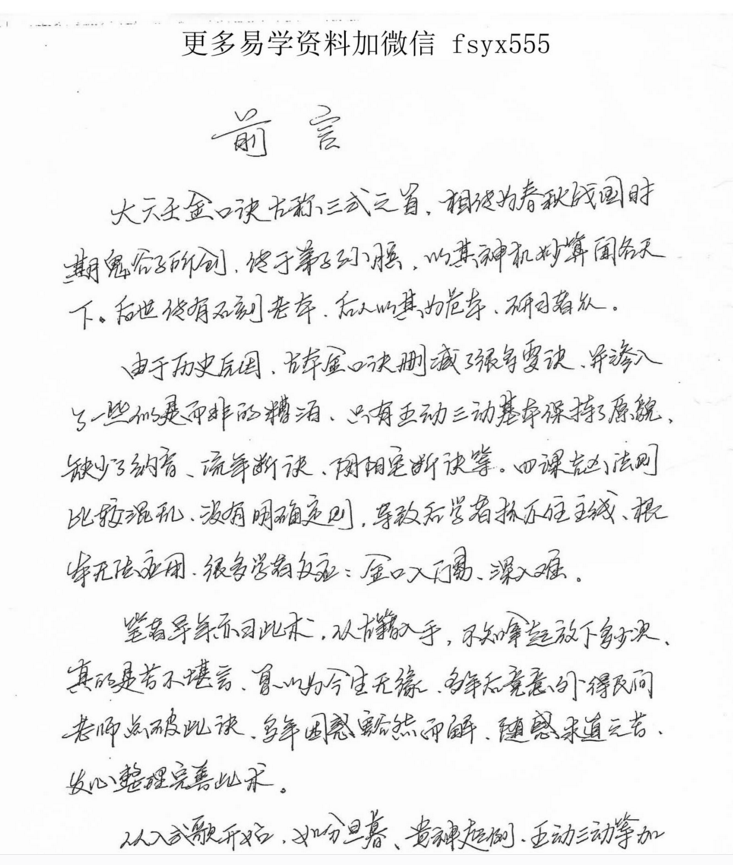 更多易学资料加微信 fsyx555
前言
大六壬金口诀古称三式之首，相传为春秋战国时
期鬼谷子所创，传于弟子孙膑，以其神机妙算闻名天
下。后世传有石刻老本，后人以其为范本，研习者众。
由于历史原因，古本金口诀删减了很多要诀，并渗入
了一些似是而非的糟泊，只有五动三动基本保持了原貌，
缺少了纳音、流年断诀、阴阳宅断诀等。四课克应法则
比较混乱，没有明确定则，导致后学者抓不住主线、根
本无法应用，很多学者反应：金口入门易、深入难。
笔者早年亦习此术，从古籍入手，不知拿起放下多少次，
真的是苦不堪言、竟以为今生无缘，多年后竟意外得民间
老师点破此诀，多年困惑豁然而解，随感求道之苦，
发心整理完善此术。
从入式歌开始，如分旦暮、贵神起例、五动三动等加